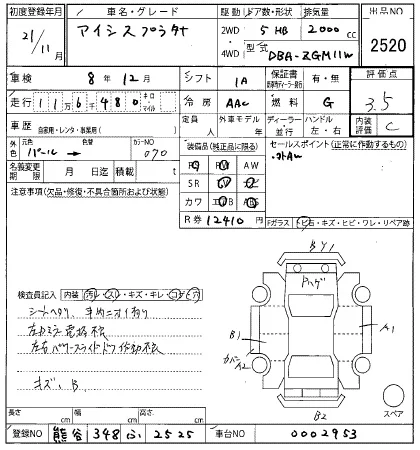 初度登録年月 車名・グレード 駆動 ドア数・形状 排気量 出品NO
21/11月 アイシス プラタナ 2WD 5 HB 2000 cc 2520
4WD 型式 DBA-ZGM11W
車検 8年12月 シフト IA 保証書 有・無 評価点
走行 116480 キロ・マイル 冷房 AAC 燃料 G 3.5
車歴 自家用・レンタ・事業用( ) 定員 人 外車モデル 年 ディーラー・並行 ハンドル 左・右 内装評価 C
外色 元色 パール→ 色替 カラーNO 070 装備品(純正品に限る) セールスポイント(正常に作動するもの)
名義変更期限 月 日迄 積載 t PS PW AW ・外AW
注意事項(欠品・修復・不具合箇所および状態) SR TV ナビ
カワ エアB ABS
R券 12410円 Fガラス トビ石・キズ・ヒビ・ワレ・リペア跡
検査員記入 内装 汚レ・スレ・キズ・キレ・コゲ・穴
シートヘタリ、車内ニオイ有り
左ドアミラー電格不良
左右パワースライドドア作動不良
キズ、B
Bソ1
Pハゲ
B1
カバーA2
A1
B2
スペア
長さ cm 幅 cm 高さ cm
登録NO 熊谷 348 ふ 2525 車台NO 0002953